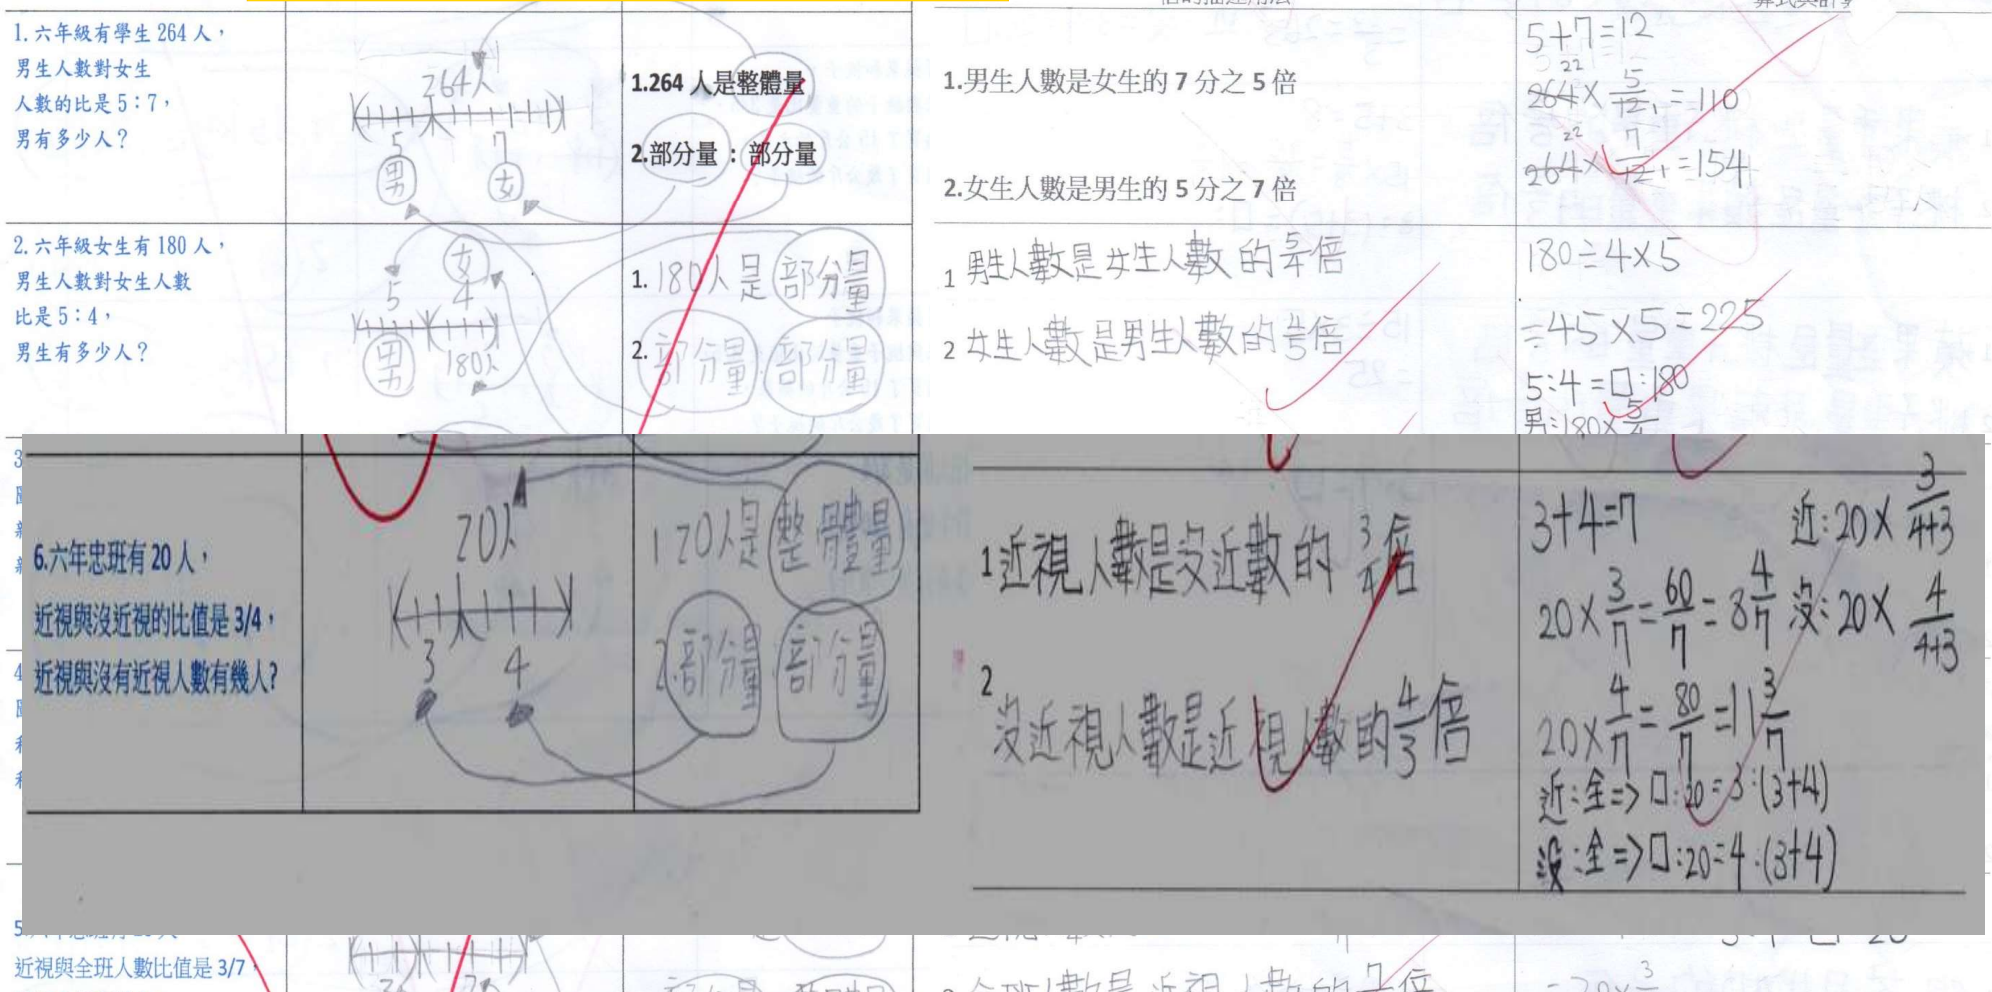 1.六年級有學生 264 人，
男生人數對女生
人數的比是 5：7，
男有多少人？
264人
5
7
男
女
1.264 人是整體量
2.部分量：部分量
1.男生人數是女生的 7 分之 5 倍
2.女生人數是男生的 5 分之 7 倍
5+7=12
22
264×5/12=110
22
264×7/12=154
2.六年級女生有 180 人，
男生人數對女生人數
比是 5：4，
男生有多少人？
女
5
4
男
180人
1. 180人是部分量
2. 部分量:部分量
1 男生人數是女生人數的5/4倍
2 女生人數是男生人數的4/5倍
180÷4×5
=45×5=225
5:4=□:180
男:180×5/4
3
4
6.六年忠班有 20 人，
近視與沒近視的比值是 3/4，
近視與沒有近視人數有幾人?
20人
3
4
1 20人是整體量
2.部分量 部分量
1近視人數是沒近數的3/4倍
2
沒近視人數是近視人數的4/3倍
3+4=7
近:20×3/4+3
20×3/7=60/7=8 4/7
沒:20×4/4+3
20×4/7=80/7=11 3/7
近:全=>□:20=3:(3+4)
沒:全=>□:20=4:(3+4)
5
近視與全班人數比值是 3/7，